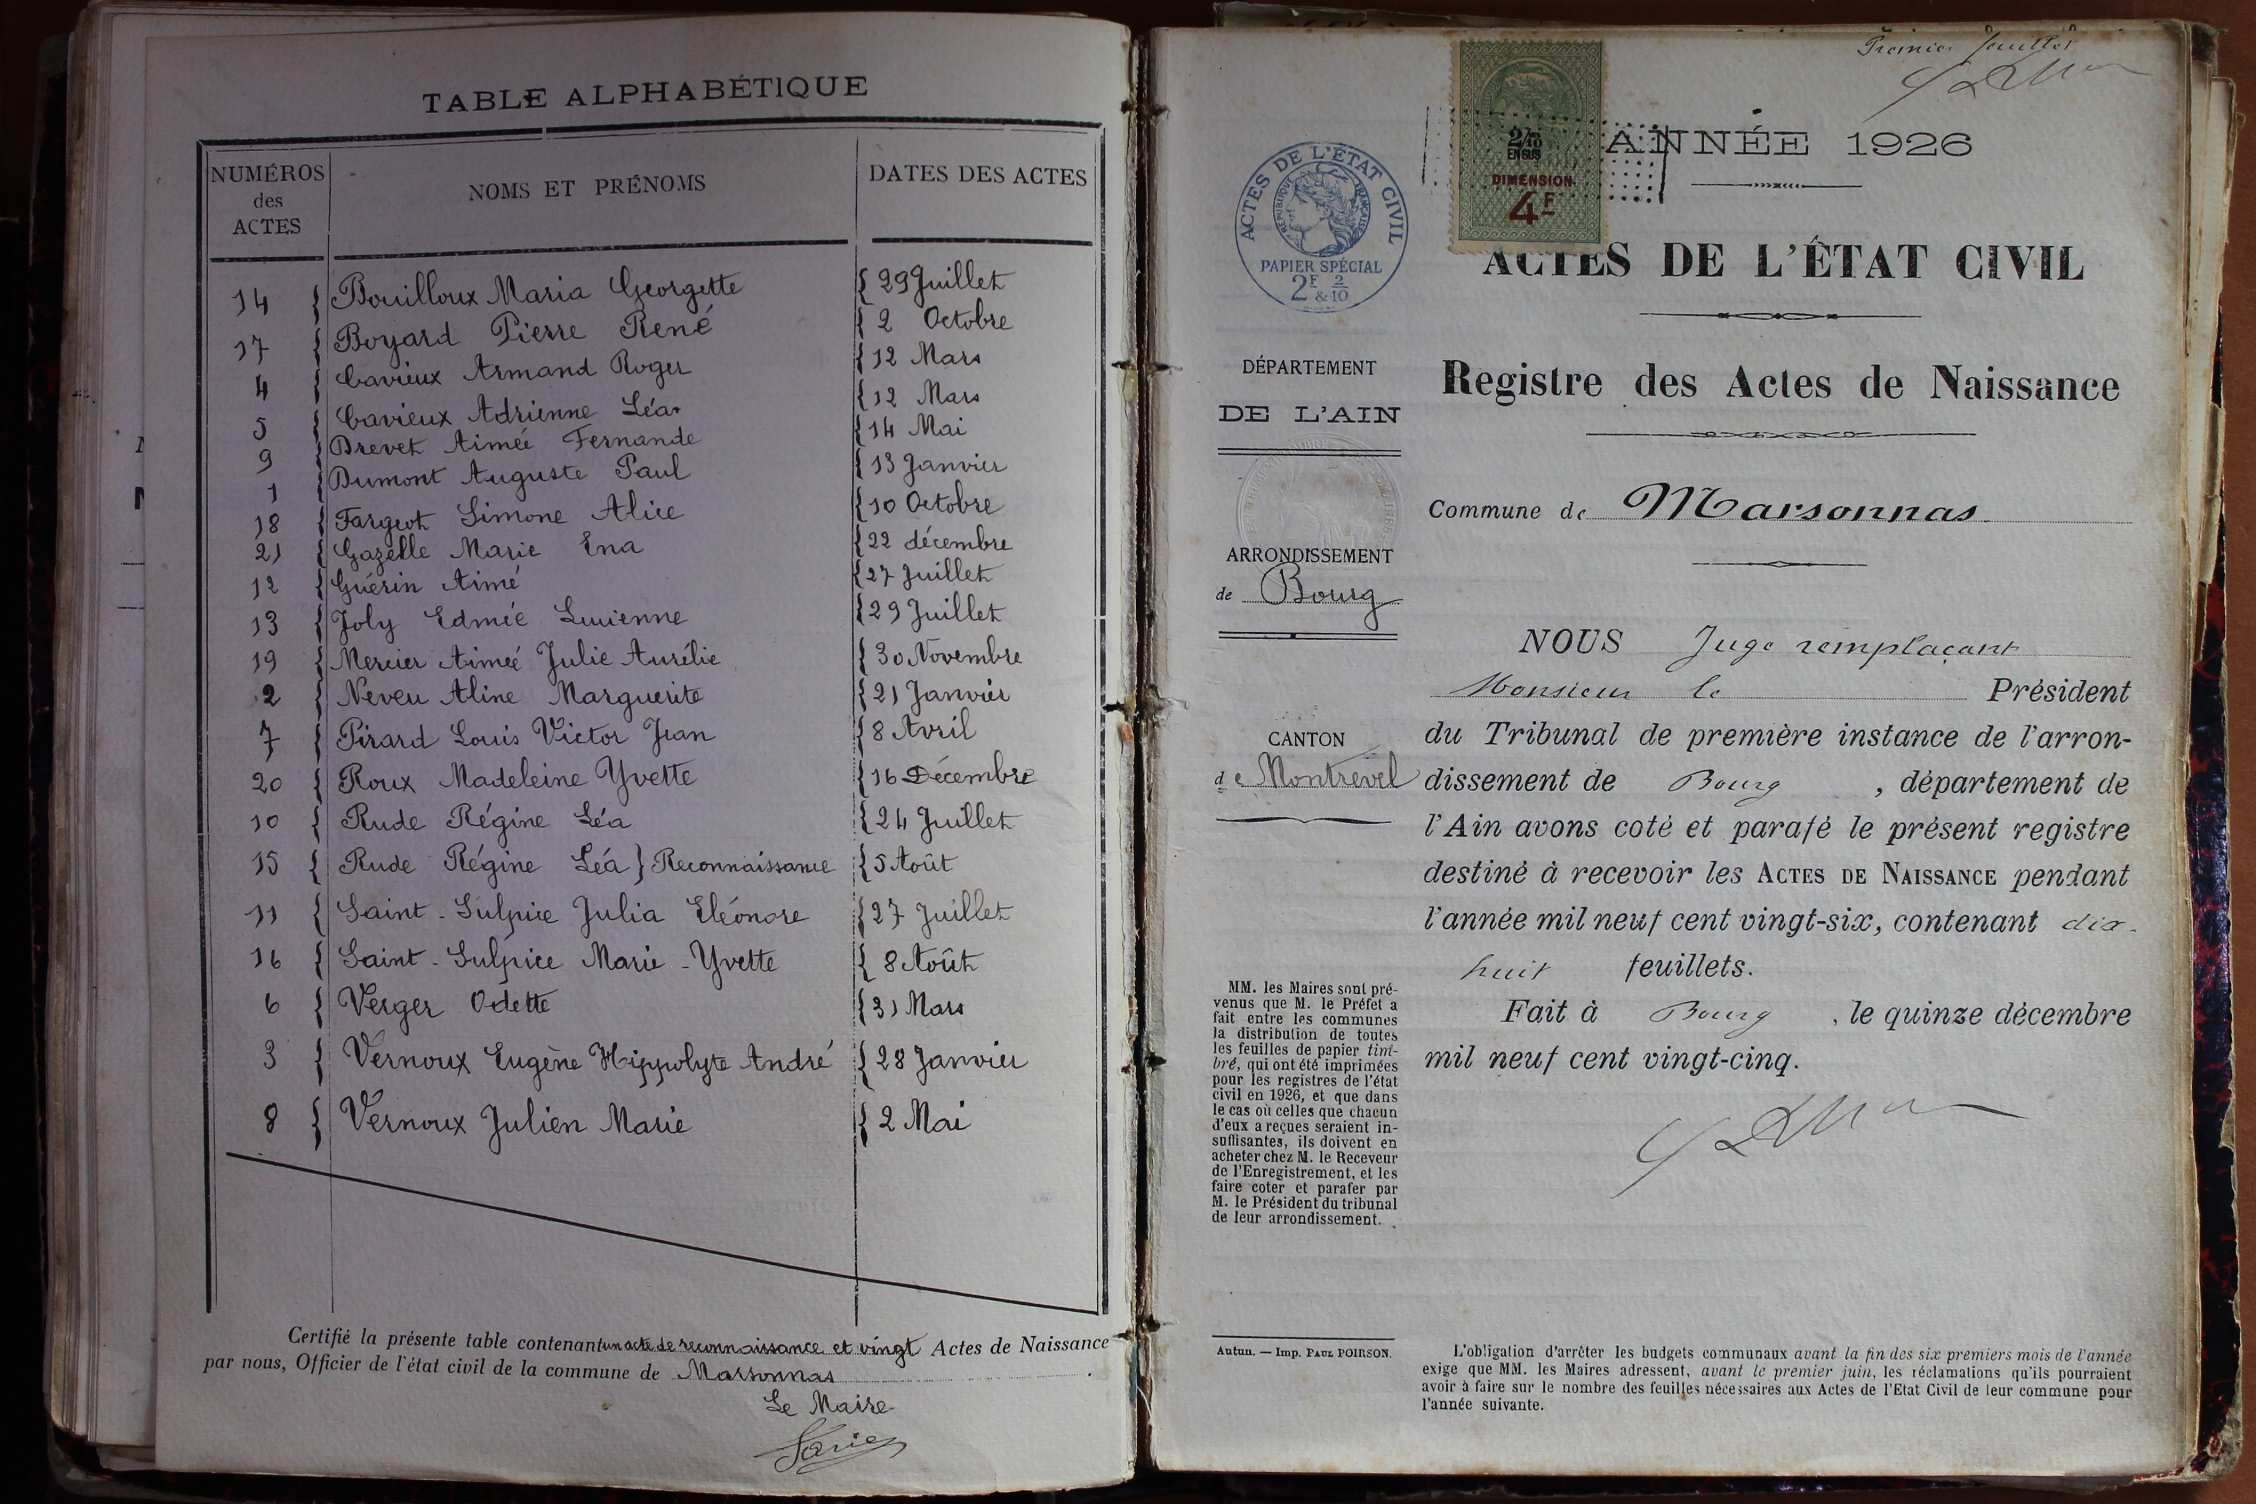 TABLE ALPHABÉTIQUE
NUMÉROS des ACTES NOMS ET PRÉNOMS DATES DES ACTES
14 { Bouilloux Maria Georgette { 29 Juillet
17 { Boyard Pierre René { 2 Octobre
4 { Cavieux Armand Roger { 12 Mars
5 { Cavieux Adrienne Léa { 12 Mars
9 { Drevet Aimée Fernande { 14 Mai
1 { Dumont Auguste Paul { 13 Janvier
18 { Fargeot Simone Alice { 10 Octobre
21 { Gazelle Marie Ena { 22 décembre
12 { Guérin Aimé { 27 Juillet
13 { Joly Edmée Lucienne { 29 Juillet
19 { Mercier Aimeé Julie Aurélie { 30 Novembre
2 { Neveu Aline Marguerite { 21 Janvier
7 { Pirard Louis Victor Jean { 8 Avril
20 { Roux Madeleine Yvette { 16 Décembre
10 { Rude Régine Léa { 24 Juillet
15 { Rude Régine Léa } Reconnaissance { 5 Août
11 { Saint-Sulpice Julia Eléonore { 27 Juillet
16 { Saint-Sulpice Marie-Yvette { 8 Août
6 { Verger Odette { 31 Mars
3 { Vernoux Eugène Hippolyte André { 28 Janvier
8 { Vernoux Julien Marie { 2 Mai
Certifié la présente table contenant un acte de reconnaissance et vingt Actes de Naissance
par nous, Officier de l'état civil de la commune de Marsonnas
Le Maire
Premier feuillet
2/10
EN SUS
DIMENSION
4F
ANNÉE 1926
ACTES DE L'ÉTAT CIVIL
RÉPUBLIQUE FRANÇAISE
PAPIER SPÉCIAL
2F & 2/10
ACTES DE L'ÉTAT CIVIL
DÉPARTEMENT
DE L'AIN
ARRONDISSEMENT
de Bourg
CANTON
de Montrevel
MM. les Maires sont pré-
venus que M. le Préfet a
fait entre les communes
la distribution de toutes
les feuilles de papier tim-
bré, qui ont été imprimées
pour les registres de l'état
civil en 1926, et que dans
le cas où celles que chacun
d'eux a reçues seraient in-
suffisantes, ils doivent en
acheter chez M. le Receveur
de l'Enregistrement, et les
faire coter et parafer par
M. le Président du tribunal
de leur arrondissement.
Autun. — Imp. PAUL POIRSON.
Registre des Actes de Naissance
Commune de Marsonnas
NOUS Juge remplaçant
Monsieur le Président
du Tribunal de première instance de l'arron-
dissement de Bourg, département de
l'Ain avons coté et parafé le présent registre
destiné à recevoir les ACTES DE NAISSANCE pendant
l'année mil neuf cent vingt-six, contenant dix-
huit feuillets.
Fait à Bourg, le quinze décembre
mil neuf cent vingt-cinq.
L'obligation d'arrêter les budgets communaux avant la fin des six premiers mois de l'année
exige que MM. les Maires adressent, avant le premier juin, les réclamations qu'ils pourraient
avoir à faire sur le nombre des feuilles nécessaires aux Actes de l'Etat Civil de leur commune pour
l'année suivante.